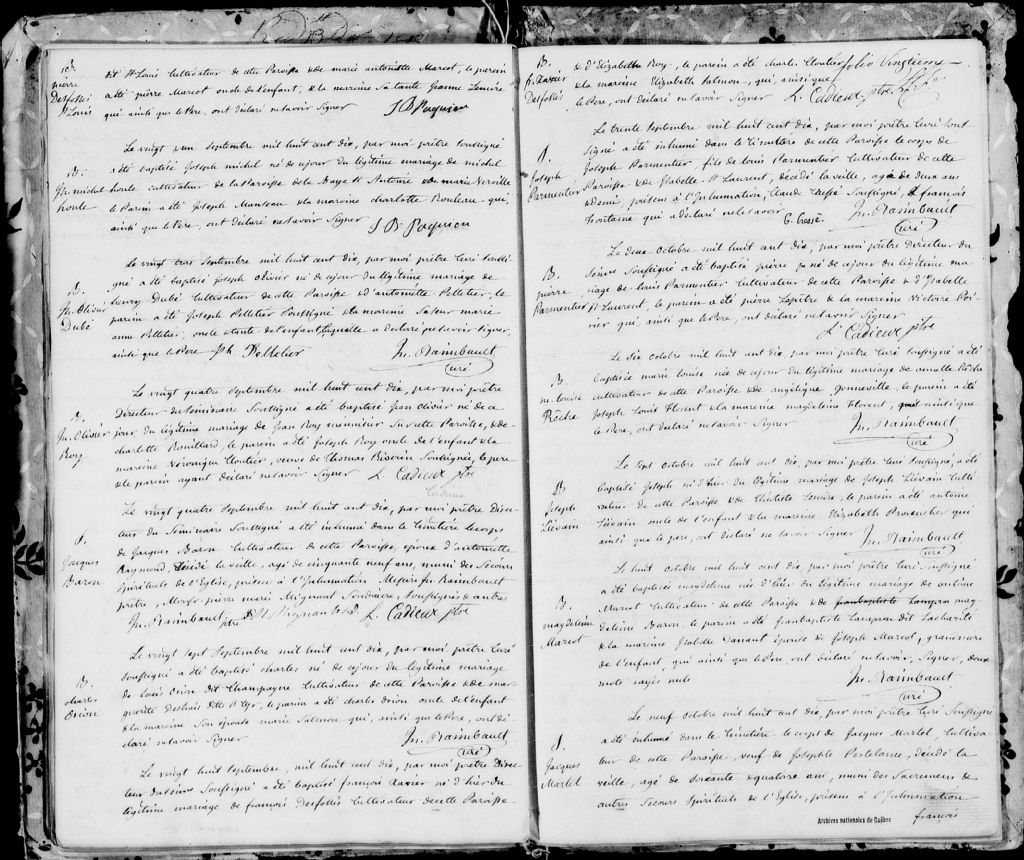 B.
pierre
Desfossés
St Louis
dit St Louis Cultivateur de cette Paroisse & de marie antoinette Marcot, le parein
a été pierre Marcot oncle de l'enfant, & la mareine Sa tante Jeanne Lemire
qui ainsi que le Pere, ont déclaré ne savoir Signer
J B Paquien
B.
Jh. michel
houle
Le vingt & un Septembre mil huit cent dix, par moi prêtre soussigné
a été baptisé Joseph michel né de ce jour du légitime mariage de michel
houle cultivateur de la Paroisse de la Baye St Antoine & de marie Verville
le Parein a été Joseph Manseau & la mareine charlotte Rouleau qui,
ainsi que le Pere, ont déclaré ne savoir Signer
J B. Paquien
B.
Jh. Olivier
Dubé
Le vingt trois Septembre mil huit cent dix, par moi prêtre Curé soussi-
gné a été baptisé Joseph Olivier né de ce jour du légitime mariage de
henry Dubé Cultivateur de cette Paroisse & d'antoinette Pelletier, le
parein a été Joseph Pelletier Soussigné & la mareine Sa sœur marie
anne Pelletier, oncle & tante de l'enfant, laquelle a déclaré ne savoir Signer,
ainsi que le Pere Jph Pelletier
Jn. Raimbault
Curé
B.
Jn. Olivier
Roy
Le vingt quatre Septembre mil huit cent dix, par moi prêtre
Directeur du Séminaire Soussigné a été baptisé Jean Olivier né de ce
jour du légitime mariage de Jean Roy menuisier Sur cette Paroisse, & de
charlotte Rouillard, le parein a été Joseph Roy oncle de l'enfant & la
mareine Véronique Cloutier, veuve de Thomas Soussignés, le pere
& le parein ayant déclaré ne savoir Signer
L. Cadieux ptre
S.
Jacques
Baron
Le vingt quatre Septembre mil huit cent dix, par moi prêtre Direc-
teur du Séminaire Soussigné a été inhumé dans le Cimetière le corps
de Jacques Baron Cultivateur de cette Paroisse, époux d'antoinette
Raymond, décédé la veille, agé de cinquante neuf ans, muni des Secours
Spirituels de l'Eglise, présens à l'Inhumation Messire Jn Raimbault
prêtre, pierre marie Mignant Soudiacre, Soussignés & autres
Jn. Raimbault ptre P. M. Mignant S.D. L. Cadieux ptre
B.
charles
Orion
Le vingt Sept Septembre mil huit cent dix, par moi prêtre Curé
Soussigné a été baptisé charles né de ce jour du légitime mariage
de Louis Orion dit Champagne Cultivateur de cette Paroisse & de mar-
guerite Deshaies dite St Cyr, le parein a été charles Orion oncle de l'enfant
& la mareine Son épouse marie Salmon qui, ainsi que le Pere, ont dé-
claré ne savoir Signer
Jn. Raimbault
Curé
Le vingt huit Septembre, mil huit cent dix, par moi prêtre Direc-
teur du Sémre Soussigné a été baptisé françois Xavier né d'hier du
légitime mariage de françois Desfossés Cultivateur de cette Paroisse
B.
f. Xavier
Desfossés
& d'Elizabeth Roy, le parein a été charles Cloutier folio Vingtieme
& la mareine Elizabeth Salmon, qui, ainsi que
le Pere, ont déclaré ne savoir Signer L. Cadieux ptre
S.
Joseph
Parmentier
Le trente Septembre mil huit cent dix, par moi prêtre Curé Sous-
signé a été inhumé dans le Cimetière de cette Paroisse le corps de
Joseph Parmentier fils de Louis Parmentier Cultivateur de cette
Paroisse & de Isabelle St Laurent, décédé la veille, agé de deux ans
& demi, présens à l'Inhumation, Claude Cressé Soussigné, & françois
fontaine qui a déclaré ne le savoir
C. Cressé
Jn. Raimbault
Curé
B.
pierre
Parmentier
Le deux Octobre mil huit cent dix, par moi prêtre Directeur du
Sémre Soussigné a été baptisé pierre né de ce jour du légitime ma-
riage de Louis Parmentier Cultivateur de cette Paroisse & d'Isabelle
St Laurent, le parein a été pierre Lepitre & la mareine Victoire Poi-
rier qui, ainsi que le Pere, ont déclaré ne savoir Signer
L. Cadieux ptre
B.
m. louise
Rèche
Le Six Octobre mil huit cent dix, par moi prêtre Curé soussigné a été
baptisée marie louise née de ce jour du légitime mariage de amable Rèche
cultivateur de cette Paroisse & de angélique Gonneville, le parein a été
Joseph Louis florent & la mareine magdeleine florent, qui ainsi que
le Pere, ont déclaré ne savoir Signer
Jn. Raimbault
Curé
B
Joseph
Liévain
Le Sept Octobre mil huit cent dix, par moi prêtre Curé soussigné, a été
baptisé Joseph né d'hier du légitime mariage de Joseph Liévain Culti-
vateur de cette Paroisse & de Théotiste Lemire, le parein a été antoine
Liévain oncle de l'enfant & la mareine Elizabeth Provencher qui
ainsi que le pere, ont déclaré ne savoir Signer
Jn. Raimbault
Curé
B.
magdeleine
Marcot
Le huit Octobre mil huit cent dix, par moi prêtre Curé Soussigné
a été baptisée magdeleine née d'hier du légitime mariage de antoine
Marcot Cultivateur de cette Paroisse & de jeanbaptiste Lampron mag-
deleine Baron, le parein a été Jeanbaptiste Lampron dit Lacharité
& la mareine Isabelle épouse de Joseph Marcot, grand mere
de l'enfant, qui ainsi que le Pere, ont déclaré ne savoir, Signer, deux
mots rayés nuls
Jn. Raimbault
Curé
S.
Jacques
Martel
Le neuf Octobre mil huit cent dix, par moi prêtre Curé Soussigné
a été inhumé dans le Cimetière le corps de Jacques Martel, Cultiva-
teur de cette Paroisse, veuf de Josephte Portelance, décédé la
veille, agé de Soixante & quatorze ans, muni des Sacremens &
autres Secours Spirituels de l'Eglise, présens à l'Inhumation
françois
Archives nationales du Québec